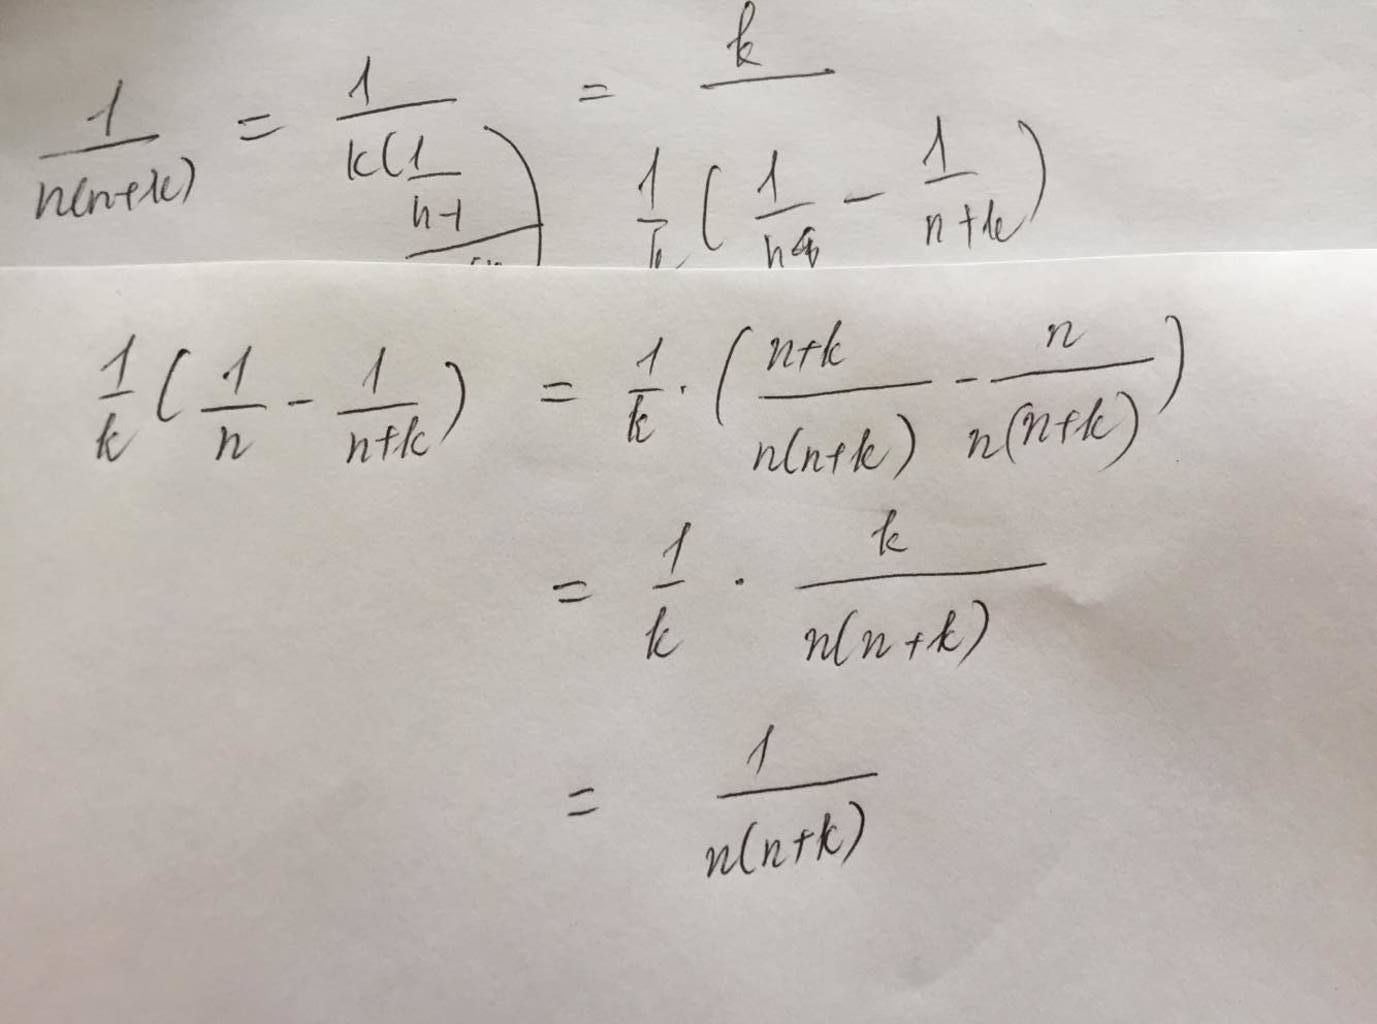 1/(n(n+k)) = 1/(k(1/(n-1 = k/(1/k (1/n - 1/(n+k)))
1/k (1/n - 1/(n+k)) = 1/k · ((n+k)/(n(n+k)) - n/(n(n+k)))
= 1/k · k/(n(n+k))
= 1/(n(n+k))